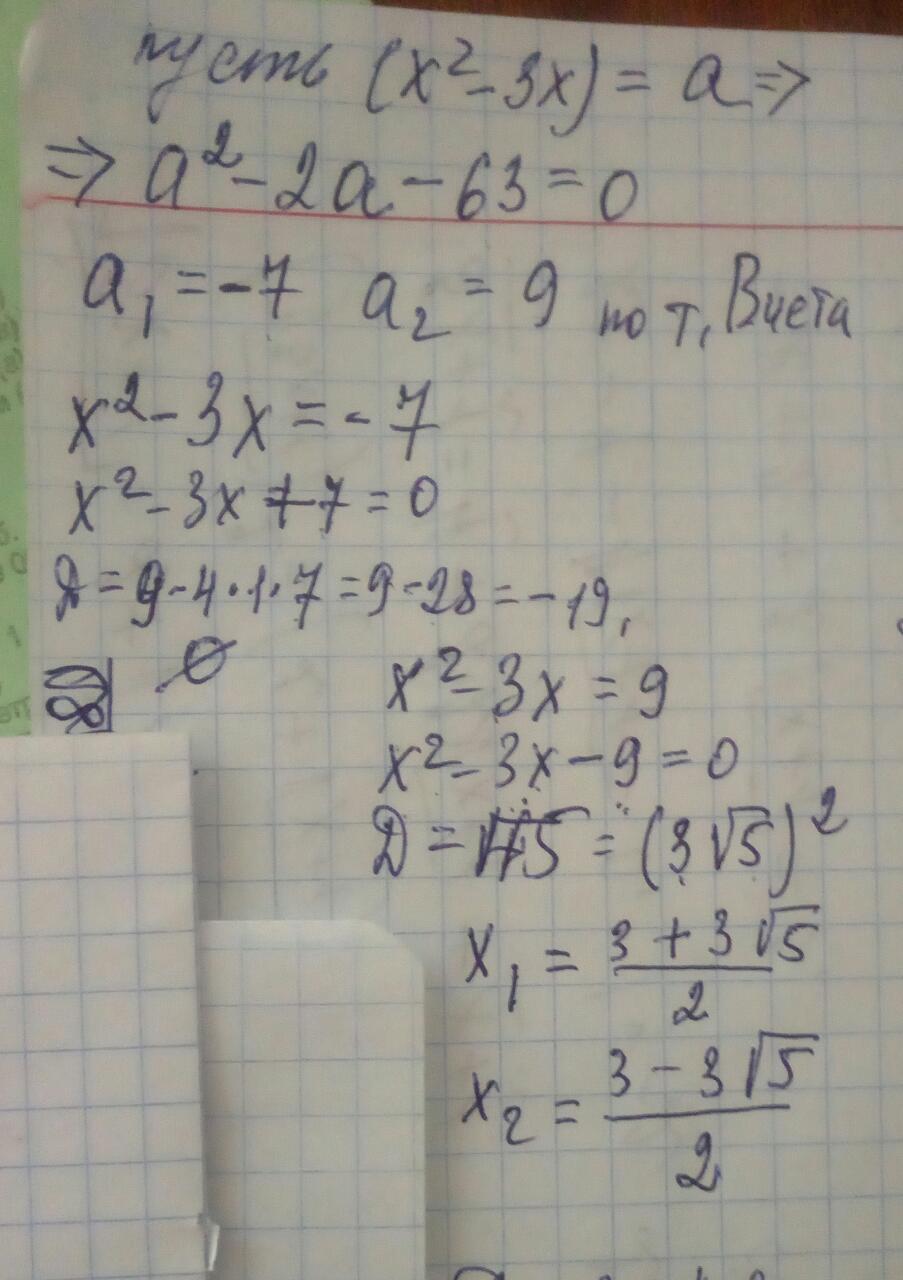 пусть (x²-3x) = a ⇒
⇒ a²-2a-63=0
a₁ = -7 a₂ = 9 по т, Виета
x²-3x = -7
x²-3x+7=0
D=9-4·1·7=9-28=-19,
∅
x²-3x = 9
x²-3x-9=0
D = 45 = (3√5)²
x₁ = (3+3√5)/2
x₂ = (3-3√5)/2